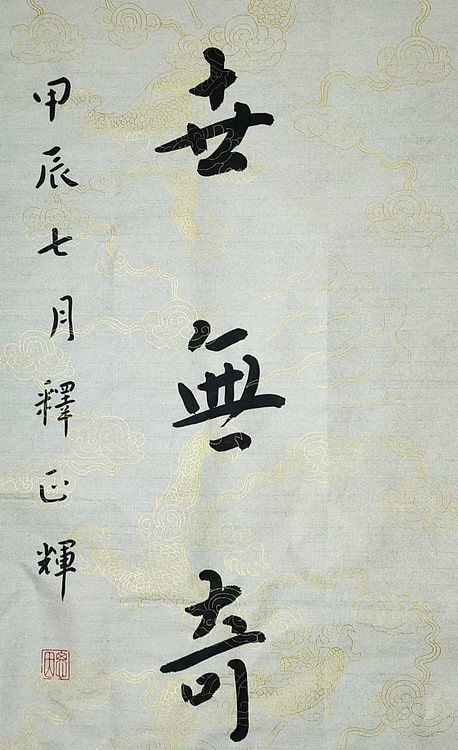 世無奇
甲辰七月釋正輝